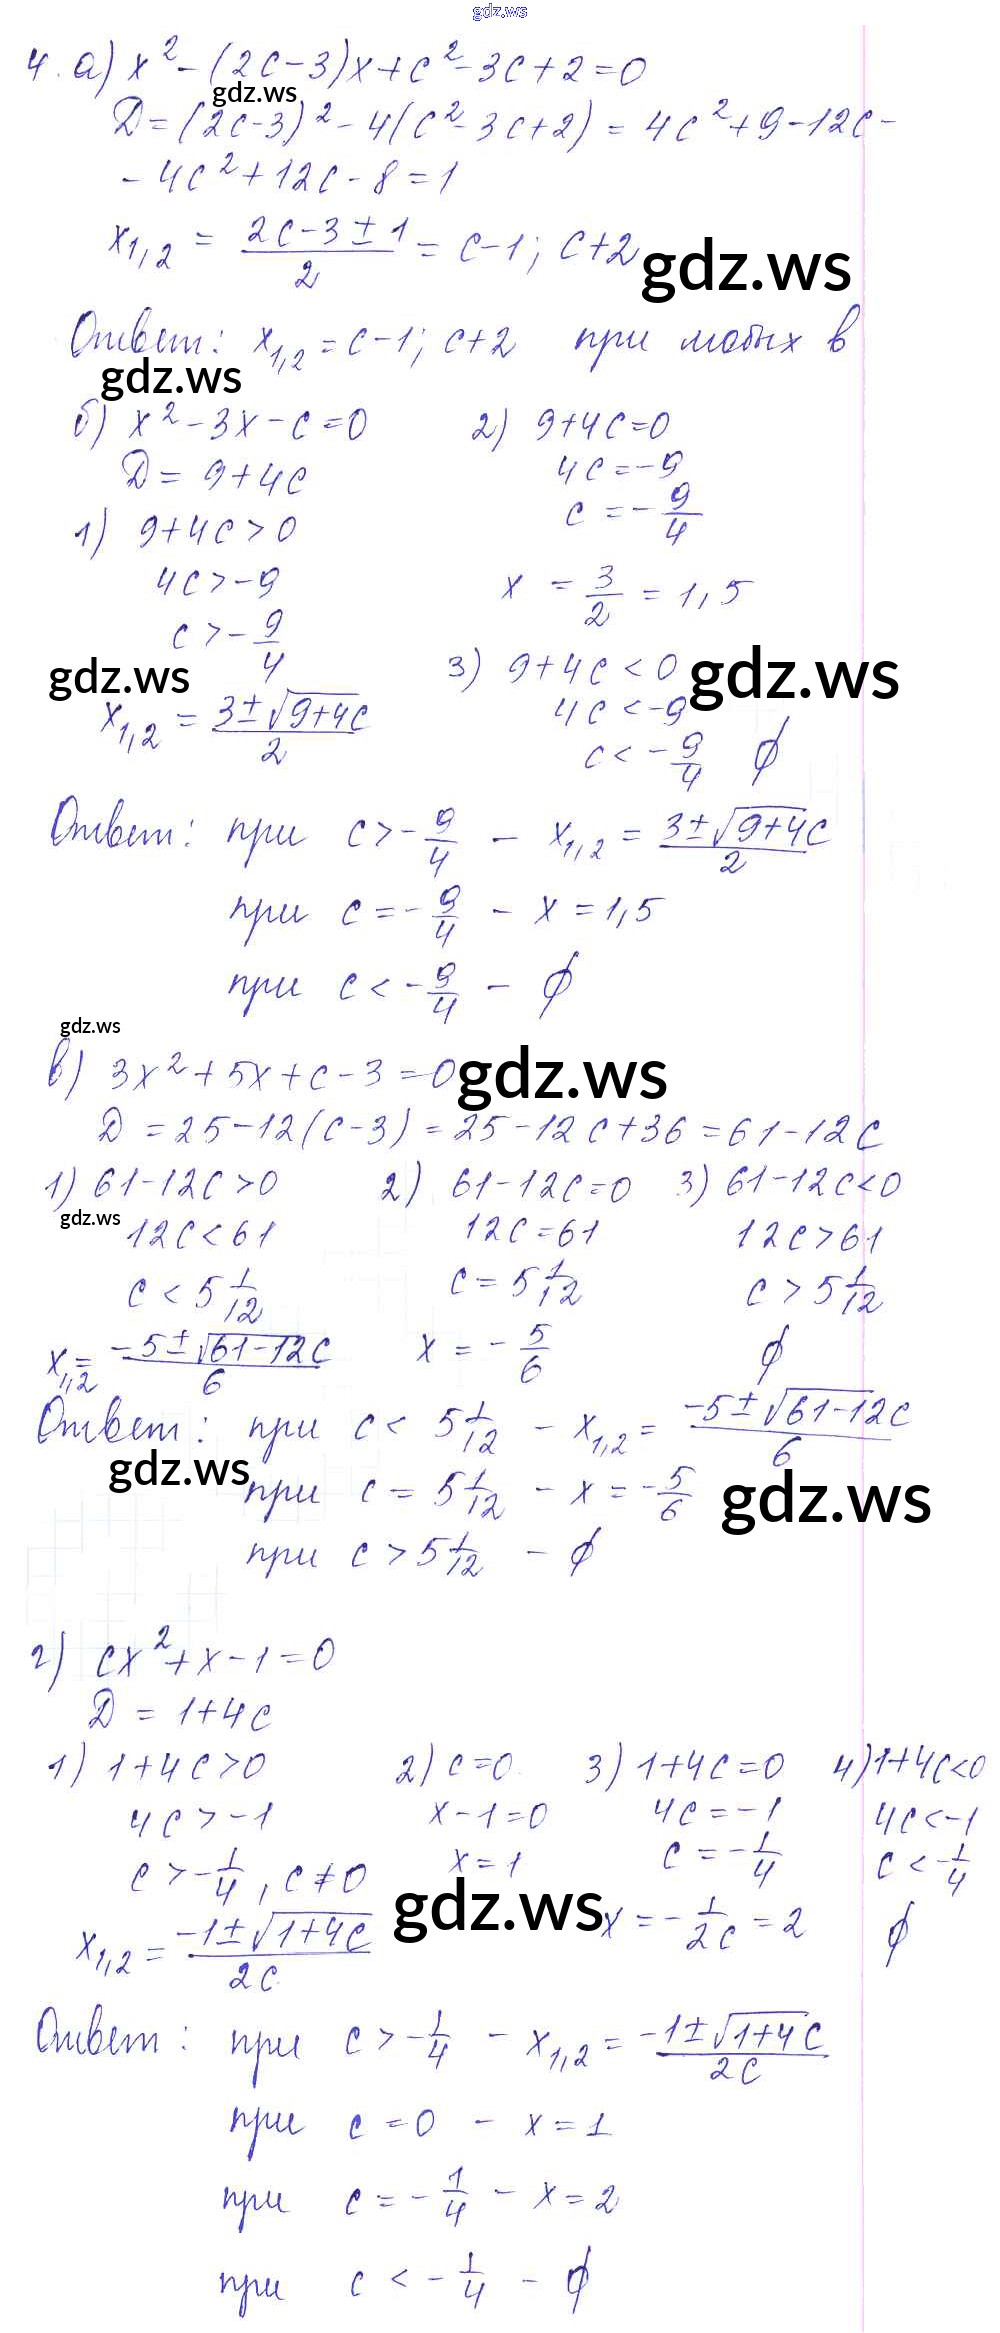 gdz.ws
4. а) x² - (2c - 3)x + c² - 3c + 2 = 0
gdz.ws
D = (2c - 3)² - 4(c² - 3c + 2) = 4c² + 9 - 12c -
- 4c² + 12c - 8 = 1
x₁,₂ = (2c - 3 ± 1)/2 = c - 1; c + 2
gdz.ws
Ответ: x₁,₂ = c - 1; c + 2 при любых в
gdz.ws
б) x² - 3x - c = 0
D = 9 + 4c
1) 9 + 4c > 0
4c > -9
c > -9/4
gdz.ws
x₁,₂ = (3 ± √(9 + 4c))/2
2) 9 + 4c = 0
4c = -9
c = -9/4
x = 3/2 = 1,5
3) 9 + 4c < 0
gdz.ws
4c < -9
c < -9/4 ∅
Ответ: при c > -9/4 - x₁,₂ = (3 ± √(9 + 4c))/2
при c = -9/4 - x = 1,5
при c < -9/4 - ∅
gdz.ws
в) 3x² + 5x + c - 3 = 0
gdz.ws
D = 25 - 12(c - 3) = 25 - 12c + 36 = 61 - 12c
1) 61 - 12c > 0 2) 61 - 12c = 0 3) 61 - 12c < 0
gdz.ws
12c < 61 12c = 61 12c > 61
c < 5 1/12 c = 5 1/12 c > 5 1/12
x₁,₂ = (-5 ± √(61 - 12c))/6 x = -5/6 ∅
Ответ: при c < 5 1/12 - x₁,₂ = (-5 ± √(61 - 12c))/6
gdz.ws
при c = 5 1/12 - x = -5/6
gdz.ws
при c > 5 1/12 - ∅
г) cx² + x - 1 = 0
D = 1 + 4c
1) 1 + 4c > 0 2) c = 0 3) 1 + 4c = 0 4) 1 + 4c < 0
4c > -1 x - 1 = 0 4c = -1 4c < -1
c > -1/4, c ≠ 0 x = 1 c = -1/4 c < -1/4
gdz.ws
x₁,₂ = (-1 ± √(1 + 4c))/2c x = -1/2c = 2 ∅
Ответ: при c > -1/4 - x₁,₂ = (-1 ± √(1 + 4c))/2c
при c = 0 - x = 1
при c = -1/4 - x = 2
при c < -1/4 - ∅